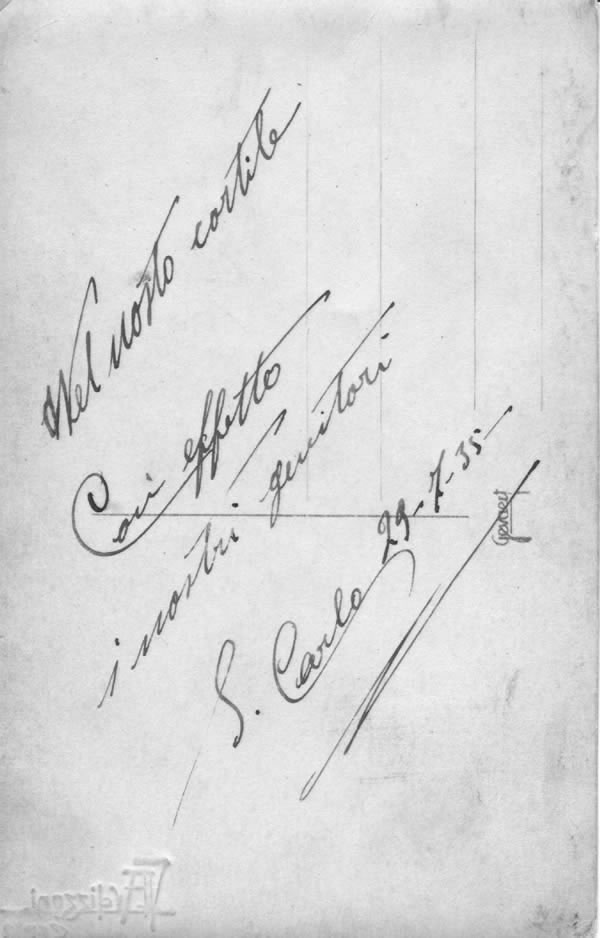 Nel nosto cortile
Con effetto
i nostri genitori
S. Carlo 29-7-35-
Gevaert